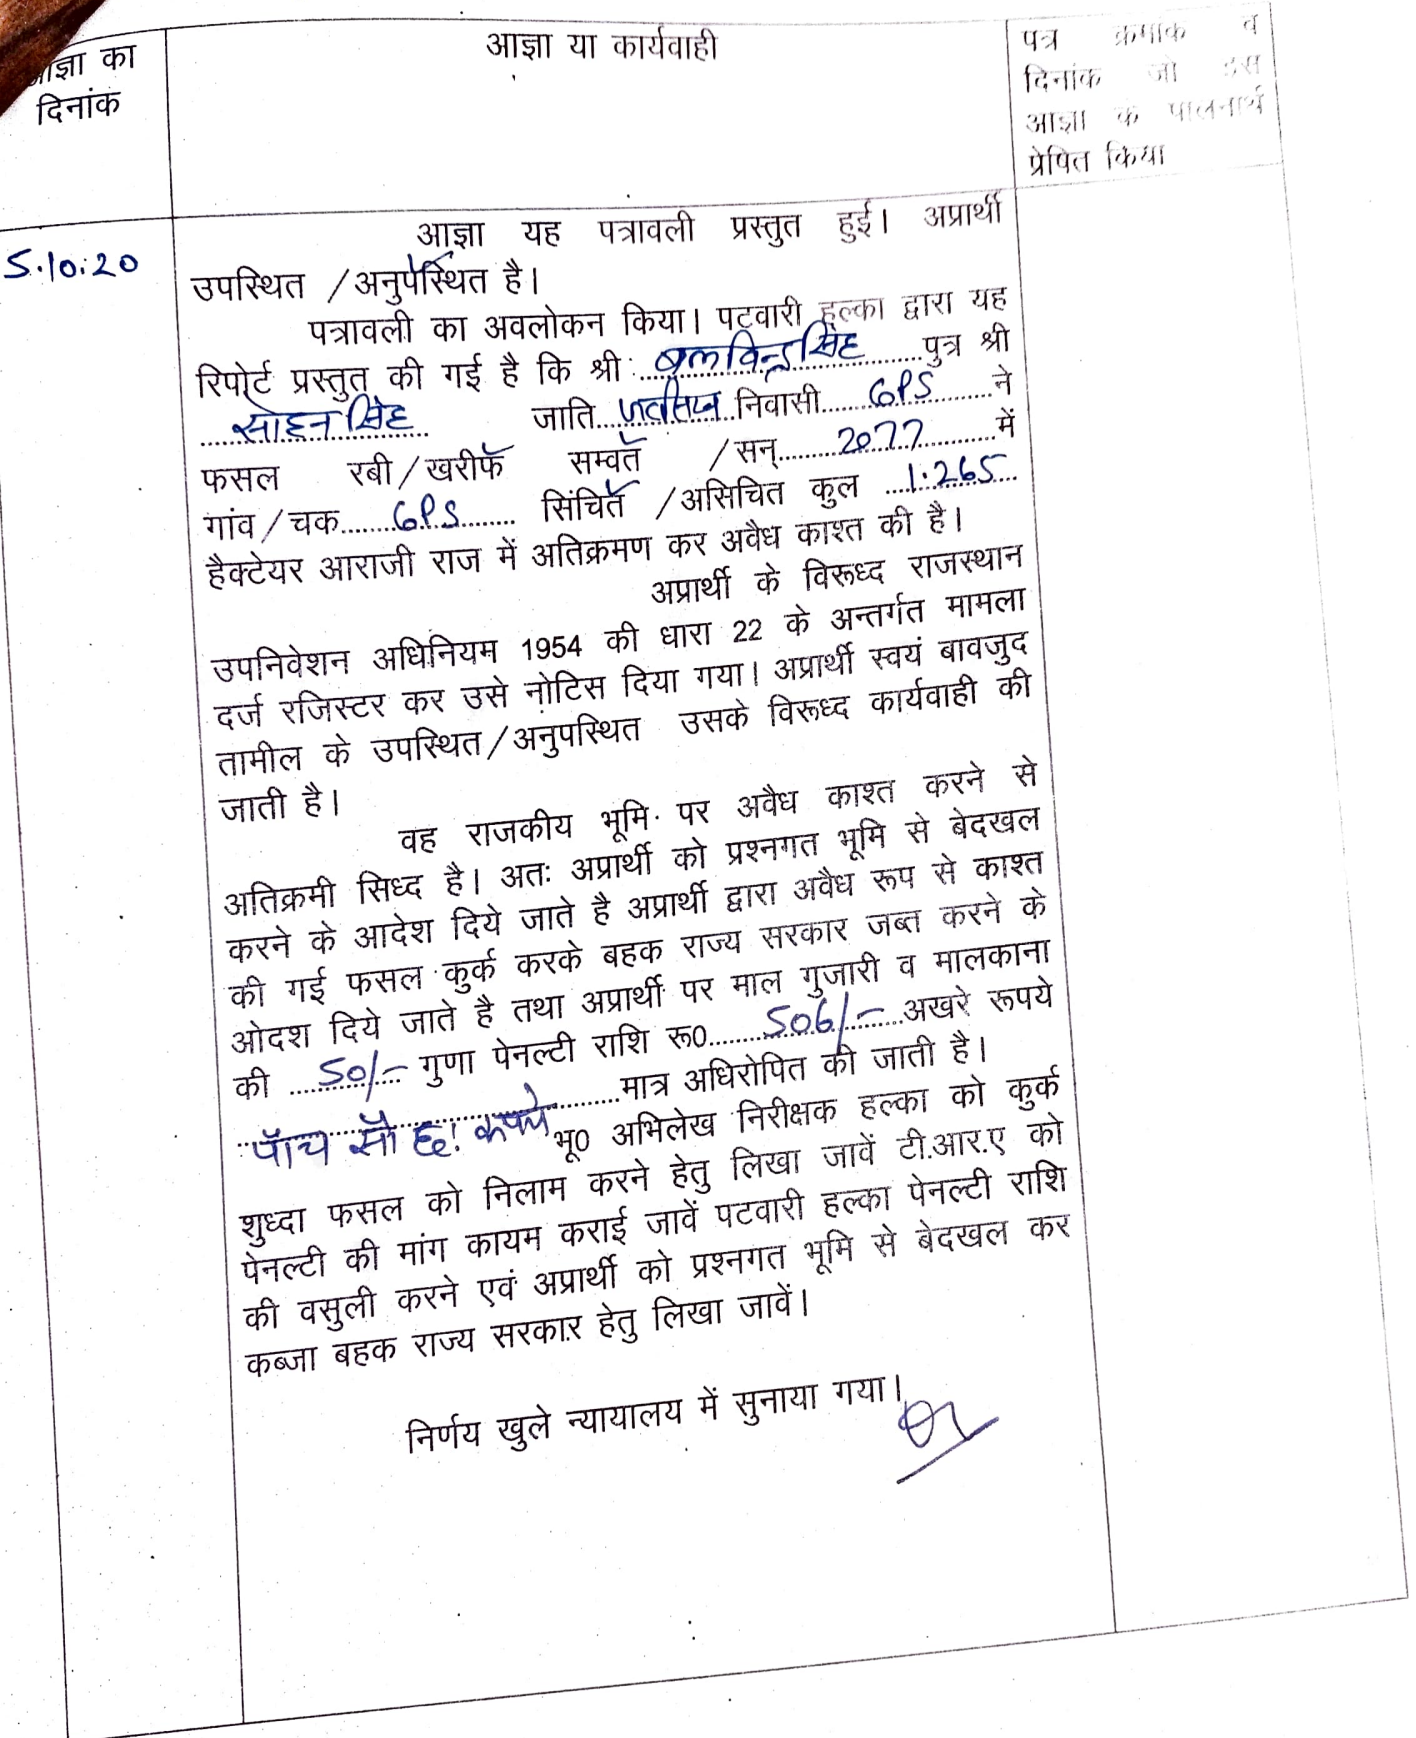 आज्ञा का
दिनांक
आज्ञा या कार्यवाही
पत्र क्रमांक व
दिनांक जो इस
आज्ञा के पालनार्थ
प्रेषित किया
5.10.20
आज्ञा यह पत्रावली प्रस्तुत हुई। अप्रार्थी
उपस्थित /अनुपस्थित है।
पत्रावली का अवलोकन किया। पटवारी हल्का द्वारा यह
रिपोर्ट प्रस्तुत की गई है कि श्री बलविन्द्रसिंह पुत्र श्री
सोहनसिंह जाति जटसिख निवासी 6PS ने
फसल रबी/खरीफ सम्वत /सन् 2077 में
गांव/चक 6PS सिंचित /असिचित कुल 1.265
हैक्टेयर आराजी राज में अतिक्रमण कर अवैध काश्त की है।
अप्रार्थी के विरूध्द राजस्थान
उपनिवेशन अधिनियम 1954 की धारा 22 के अन्तर्गत मामला
दर्ज रजिस्टर कर उसे नोटिस दिया गया। अप्रार्थी स्वयं बावजुद
तामील के उपस्थित/अनुपस्थित उसके विरूध्द कार्यवाही की
जाती है।
वह राजकीय भूमि पर अवैध काश्त करने से
अतिक्रमी सिध्द है। अतः अप्रार्थी को प्रश्नगत भूमि से बेदखल
करने के आदेश दिये जाते है अप्रार्थी द्वारा अवैध रूप से काश्त
की गई फसल कुर्क करके बहक राज्य सरकार जब्त करने के
ओदश दिये जाते है तथा अप्रार्थी पर माल गुजारी व मालकाना
की 50/- गुणा पेनल्टी राशि रू0 506/- अखरे रूपये
पाँच सौ छः रूपये मात्र अधिरोपित की जाती है।
भू0 अभिलेख निरीक्षक हल्का को कुर्क
शुध्दा फसल को निलाम करने हेतु लिखा जावें टी.आर.ए को
पेनल्टी की मांग कायम कराई जावें पटवारी हल्का पेनल्टी राशि
की वसुली करने एवं अप्रार्थी को प्रश्नगत भूमि से बेदखल कर
कब्जा बहक राज्य सरकार हेतु लिखा जावें।
निर्णय खुले न्यायालय में सुनाया गया।